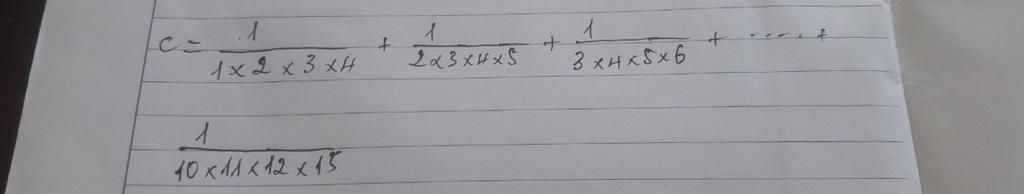 C = 1/(1×2×3×4) + 1/(2×3×4×5) + 1/(3×4×5×6) + ..... +
1/(10×11×12×13)